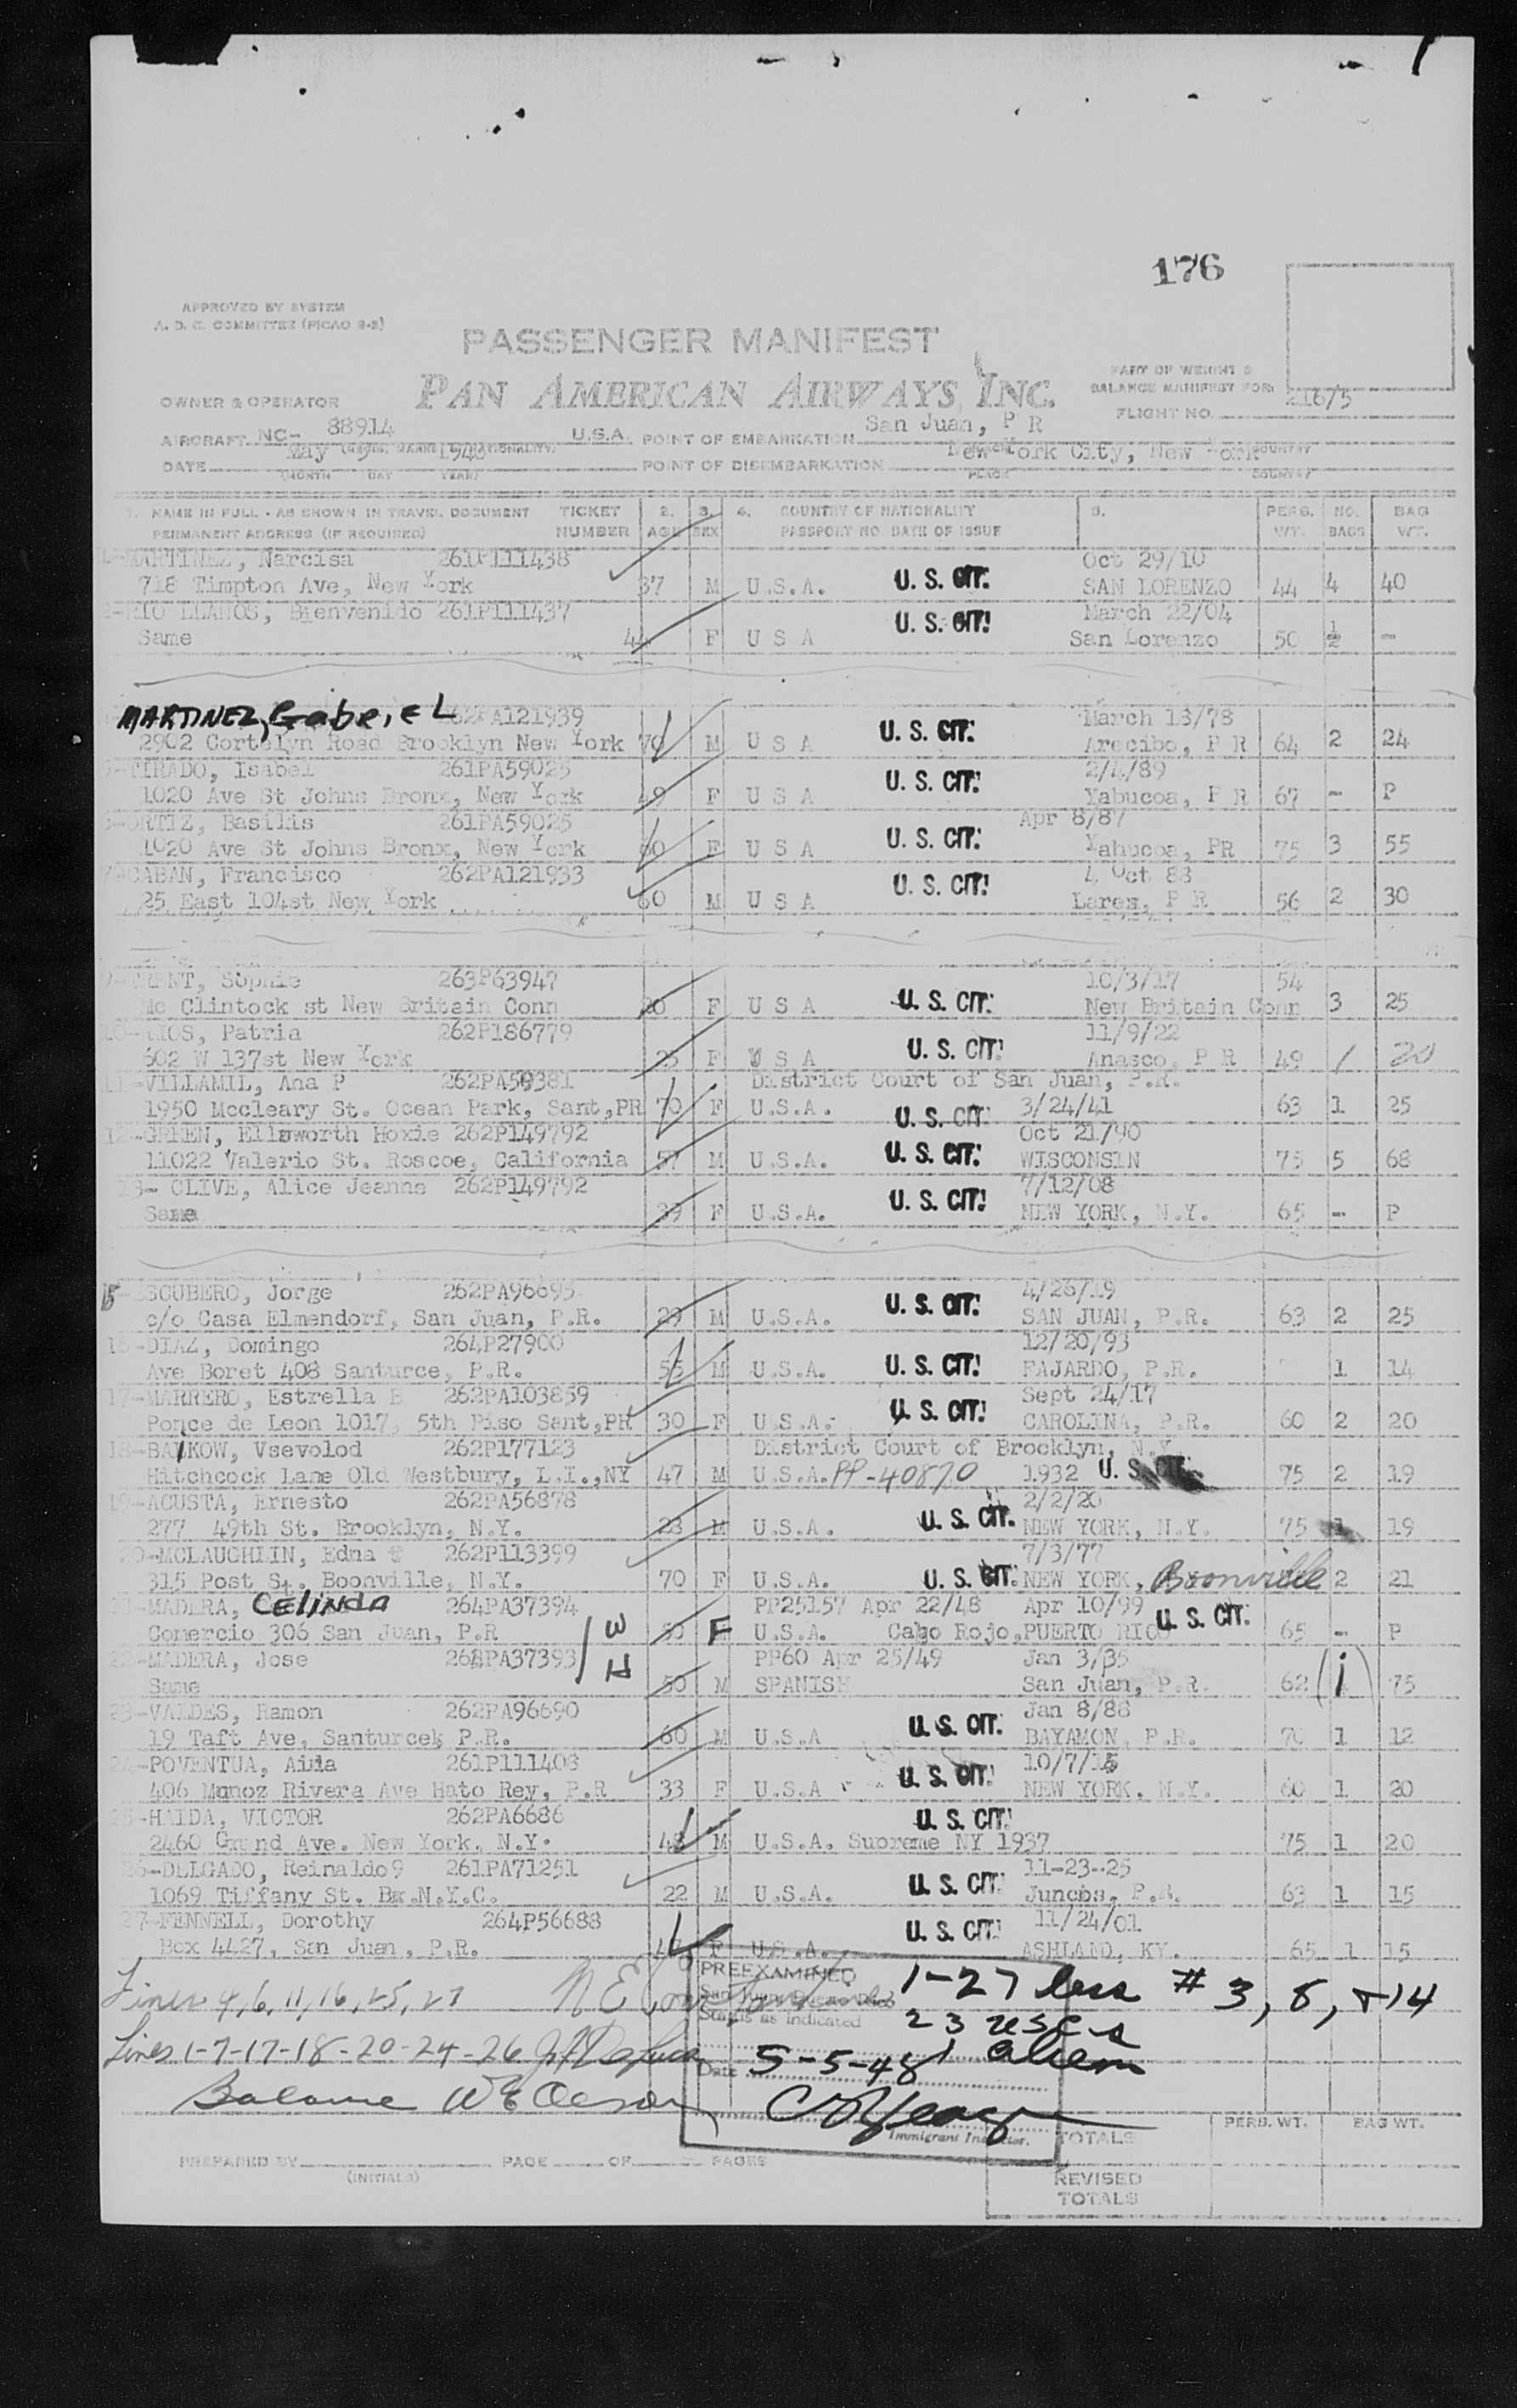 176
APPROVED BY SYSTEM
A. D. C. COMMITTEE (PICAO 9-2)
PASSENGER MANIFEST
PAN AMERICAN AIRWAYS, INC.
PART OF WEIGHT &
BALANCE MANIFEST FOR:
FLIGHT NO. 216/5
OWNER & OPERATOR
AIRCRAFT NC- 88914 U.S.A. POINT OF EMBARKATION San Juan, P R
DATE May 5 1948 POINT OF DISEMBARKATION New York City, New York
(MONTH DAY YEAR) PLACE COUNTRY
1. NAME IN FULL - AS SHOWN IN TRAVEL DOCUMENT TICKET 2. 3. 4. COUNTRY OF NATIONALITY 5. PERS. NO. BAG
PERMANENT ADDRESS (IF REQUIRED) NUMBER AGE SEX PASSPORT NO. DATE OF ISSUE WT. BAGS WT.
MARTINEZ, Narcisa 261P111438 Oct 29/10
718 Timpton Ave, New York 37 M U.S.A. U. S. CIT. SAN LORENZO 44 4 40
2-RIO LLANOS, Bienvenido 261P111437 March 22/04
Same 44 F U S A U. S. CIT. San Lorenzo 50 1/2 -
MARTINEZ, GabriEL 262PA121939 March 18/78
2902 Cortelyn Road Brooklyn New York 70 M U S A U. S. CIT. Arecibo, P R 64 2 24
-TIRADO, Isabel 261PA59025 2/4/89
1020 Ave St Johns Bronx, New York 49 F U S A U. S. CIT. Yabucoa, P R 67 - P
-ORTIZ, Basilis 261PA59025 Apr 8/87
1020 Ave St Johns Bronx, New York 60 F U S A U. S. CIT. Yabucoa, PR 75 3 55
CABAN, Francisco 262PA121933 4 Oct 88
25 East 104st New York 60 M U S A U. S. CIT. Lares, P R 56 2 30
Sophie 263P63947 10/3/17 54
Mc Clintock st New Britain Conn F U S A U. S. CIT. New Britain Conn 3 25
10-RIOS, Patria 262P186779 11/9/22
602 W 137st New York 25 F U S A U. S. CIT. Anasco, P R 49 1 20
11-VILLAMIL, Ana P 262PA59381 District Court of San Juan, P.R.
1950 Mccleary St. Ocean Park, Sant,PR 70 F U.S.A. U. S. CIT. 3/24/41 63 1 25
12-GREEN, Ellsworth Hoxie 262P149792 Oct 21/90
11022 Valerio St. Roscoe, California 57 M U.S.A. U. S. CIT. WISCONSIN 75 5 68
- OLIVE, Alice Jeanne 262P149792 7/12/08
Same 39 F U.S.A. U. S. CIT. NEW YORK, N.Y. 65 - P
15-ESCUBERO, Jorge 262PA96695 4/26/19
c/o Casa Elmendorf, San Juan, P.R. 29 M U.S.A. U. S. CIT. SAN JUAN, P.R. 63 2 25
16-DIAZ, Domingo 264P27900 12/20/93
Ave Boret 408 Santurce, P.R. 55 M U.S.A. U. S. CIT. FAJARDO, P.R. 1 14
17-MARRERO, Estrella B 262PA103859 Sept 24/17
Ponce de Leon 1017, 5th Piso Sant,PR 30 F U.S.A. U. S. CIT. CAROLINA, P.R. 60 2 20
18-BAYKOW, Vsevolod 262P177123 District Court of Brooklyn, N.Y.
Hitchcock Lane Old Westbury, L.I.,NY 47 M U.S.A. PP-40870 1932 U. S. CIT. 75 2 19
19-ACUSTA, Ernesto 262PA56878 2/2/20
277 49th St. Brooklyn, N.Y. 28 M U.S.A. U. S. CIT. NEW YORK, N.Y. 75 1 19
20-MCLAUGHLIN, Edna 262P113399 7/3/77
315 Post St. Boonville, N.Y. 70 F U.S.A. U. S. CIT. NEW YORK, Boonville 2 21
21-MADERA, CELINDA 264PA37394 PP25157 Apr 22/48 Apr 10/99
Comercio 306 San Juan, P.R W 50 F U.S.A. Cabo Rojo, PUERTO RICO U. S. CIT. 65 - P
22-MADERA, Jose 268PA37393 H PP60 Apr 25/49 Jan 3/35
Same 50 M SPANISH San Juan, P.R. 62 (1) 75
23-VALDES, Ramon 262PA96690 Jan 8/88
19 Taft Ave, Santurce, P.R. 60 M U.S.A U. S. CIT. BAYAMON, P.R. 70 1 12
24-POVENTUA, Aida 261P111408 10/7/15
406 Munoz Rivera Ave Hato Rey, P.R 33 F U.S.A U. S. CIT. NEW YORK, N.Y. 60 1 20
25-HAIDA, VICTOR 262PA6686 U. S. CIT.
2460 Grand Ave. New York, N.Y. 48 M U.S.A. Supreme NY 1937 75 1 20
26-DELGADO, Reinaldo 261PA71251 11-23-25
1069 Tiffany St. Bx.N.Y.C. 22 M U.S.A. U. S. CIT. Juncos, P.R. 63 1 15
27-FENNELL, Dorothy 264P56688 11/24/01
Box 4427, San Juan, P.R. F U.S.A. U. S. CIT. ASHLAND, KY. 65 1 15
Lines 4, 6, 11, 16, 25, 27
PREEXAMINED 1-27 less # 3, 8, + 14
San Juan, Puerto Rico
Status as indicated 23 USC's
1 alien
Lines 1-7-17-18-20-24-26
Date 5-5-48
Balance
Immigrant Inspector.
TOTALS PERS. WT. BAG WT.
PREPARED BY (INITIALS) PAGE OF PAGES
REVISED
TOTALS